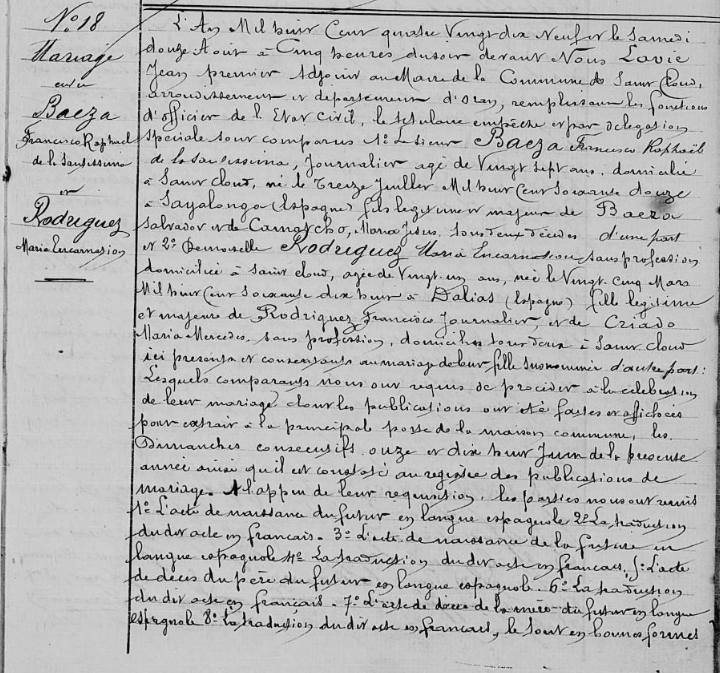 N° 18
Mariage
entre
Baeza
Francisco Raphael
de la Santissima
et
Rodriguez
Maria Encarnasion
L'An Mil huit Cent quatre Vingt dix Neuf et le Samedi
douze Aout à Cinq heures du soir devant Nous Lavie
Jean premier Adjoint au Maire de la Commune de Saint Cloud,
arrondissement et departement d'Oran, remplissant les fonctions
d'officier de l'Etat Civil, le titulaire empêché et par delegation
speciale sont comparus 1° Le Sieur Baeza Francisco Raphaël
de la Santissima, Journalier agé de Vingt sept ans, domicilié
à Saint Cloud, né le Treize Juillet Mil huit Cent Soixante douze
à Sayalongo (Espagne) fils legitime et majeur de Baeza
Salvador et de Camatcho, Maria Jesus, tous deux décédés d'une part
et 2° Demoiselle Rodriguez Maria Encarnation sans profession
domiciliée à Saint Cloud, agée de Vingt-un ans, née le Vingt-Cinq Mars
Mil huit Cent Soixante dix huit à Dalias (Espagne) fille legitime
et majeure de Rodriguez Francisco Journalier, et de Criado
Maria Mercedes, sans profession, domiciliés tous deux à Saint Cloud
ici presents et consentants au mariage de leur fille susnommée d'autre part:
Lesquels comparants nous ont requis de proceder à la célébration
de leur mariage dont les publications ont été faites et affichées
par extrait à la principale porte de la maison commune, les
Dimanches consecutifs onze et dix huit Juin de la presente
année ainsi qu'il est constaté au registre des publications de
mariage. A l'appui de leur requisition, les parties nous ont remis
1° L'acte de naissance du futur en langue espagnole 2° La traduction
du dit acte en français. 3° L'acte de naissance de la future en
langue espagnole 4° La traduction du dit acte en francais, 5° L'acte
de décès du père du futur en langue espagnole. 6° La traduction
du dit acte en français. 7° L'acte de décès de la mère du futur en langue
espagnole 8° La traduction du dit acte en francais, le tout en bonnes formes